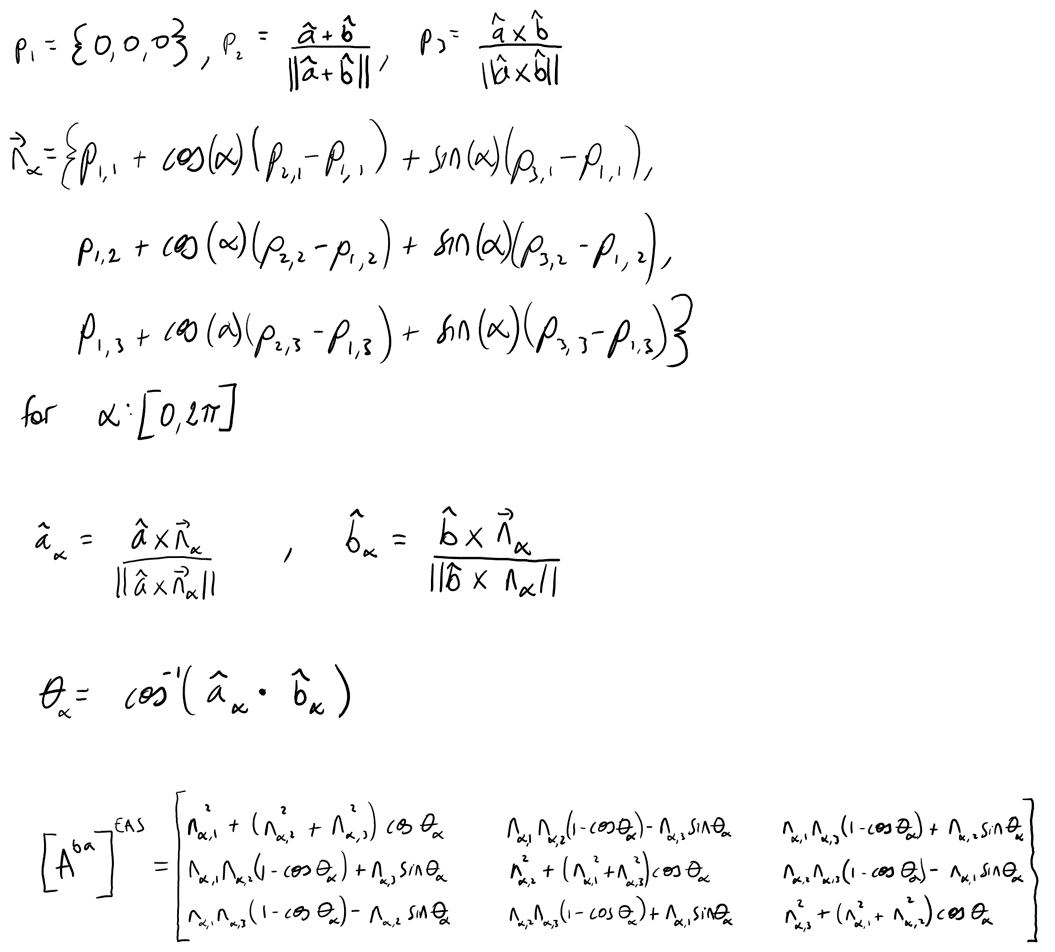 p₁ = {0,0,0}, p₂ = (â + b̂)/||â + b̂||, p₃ = (â × b̂)/||â × b̂||
n⃗_α = {p_{1,1} + cos(α)(p_{2,1} - p_{1,1}) + sin(α)(p_{3,1} - p_{1,1}),
p_{1,2} + cos(α)(p_{2,2} - p_{1,2}) + sin(α)(p_{3,2} - p_{1,2}),
p_{1,3} + cos(α)(p_{2,3} - p_{1,3}) + sin(α)(p_{3,3} - p_{1,3})}
for α:[0,2π]
â_α = (â × n⃗_α)/||â × n⃗_α|| , b̂_α = (b̂ × n⃗_α)/||b̂ × n_α||
θ_α = cos⁻¹(â_α · b̂_α)
[A^{ba}]^{EAS} = [n_{α,1}² + (n_{α,2}² + n_{α,3}²) cos θ_α   n_{α,1} n_{α,2}(1 - cos θ_α) - n_{α,3} sin θ_α   n_{α,1} n_{α,3}(1 - cos θ_α) + n_{α,2} sin θ_α
n_{α,1} n_{α,2}(1 - cos θ_α) + n_{α,3} sin θ_α   n_{α,2}² + (n_{α,1}² + n_{α,3}²) cos θ_α   n_{α,2} n_{α,3}(1 - cos θ_α) - n_{α,1} sin θ_α
n_{α,1} n_{α,3}(1 - cos θ_α) - n_{α,2} sin θ_α   n_{α,2} n_{α,3}(1 - cos θ_α) + n_{α,1} sin θ_α   n_{α,3}² + (n_{α,1}² + n_{α,2}²) cos θ_α]